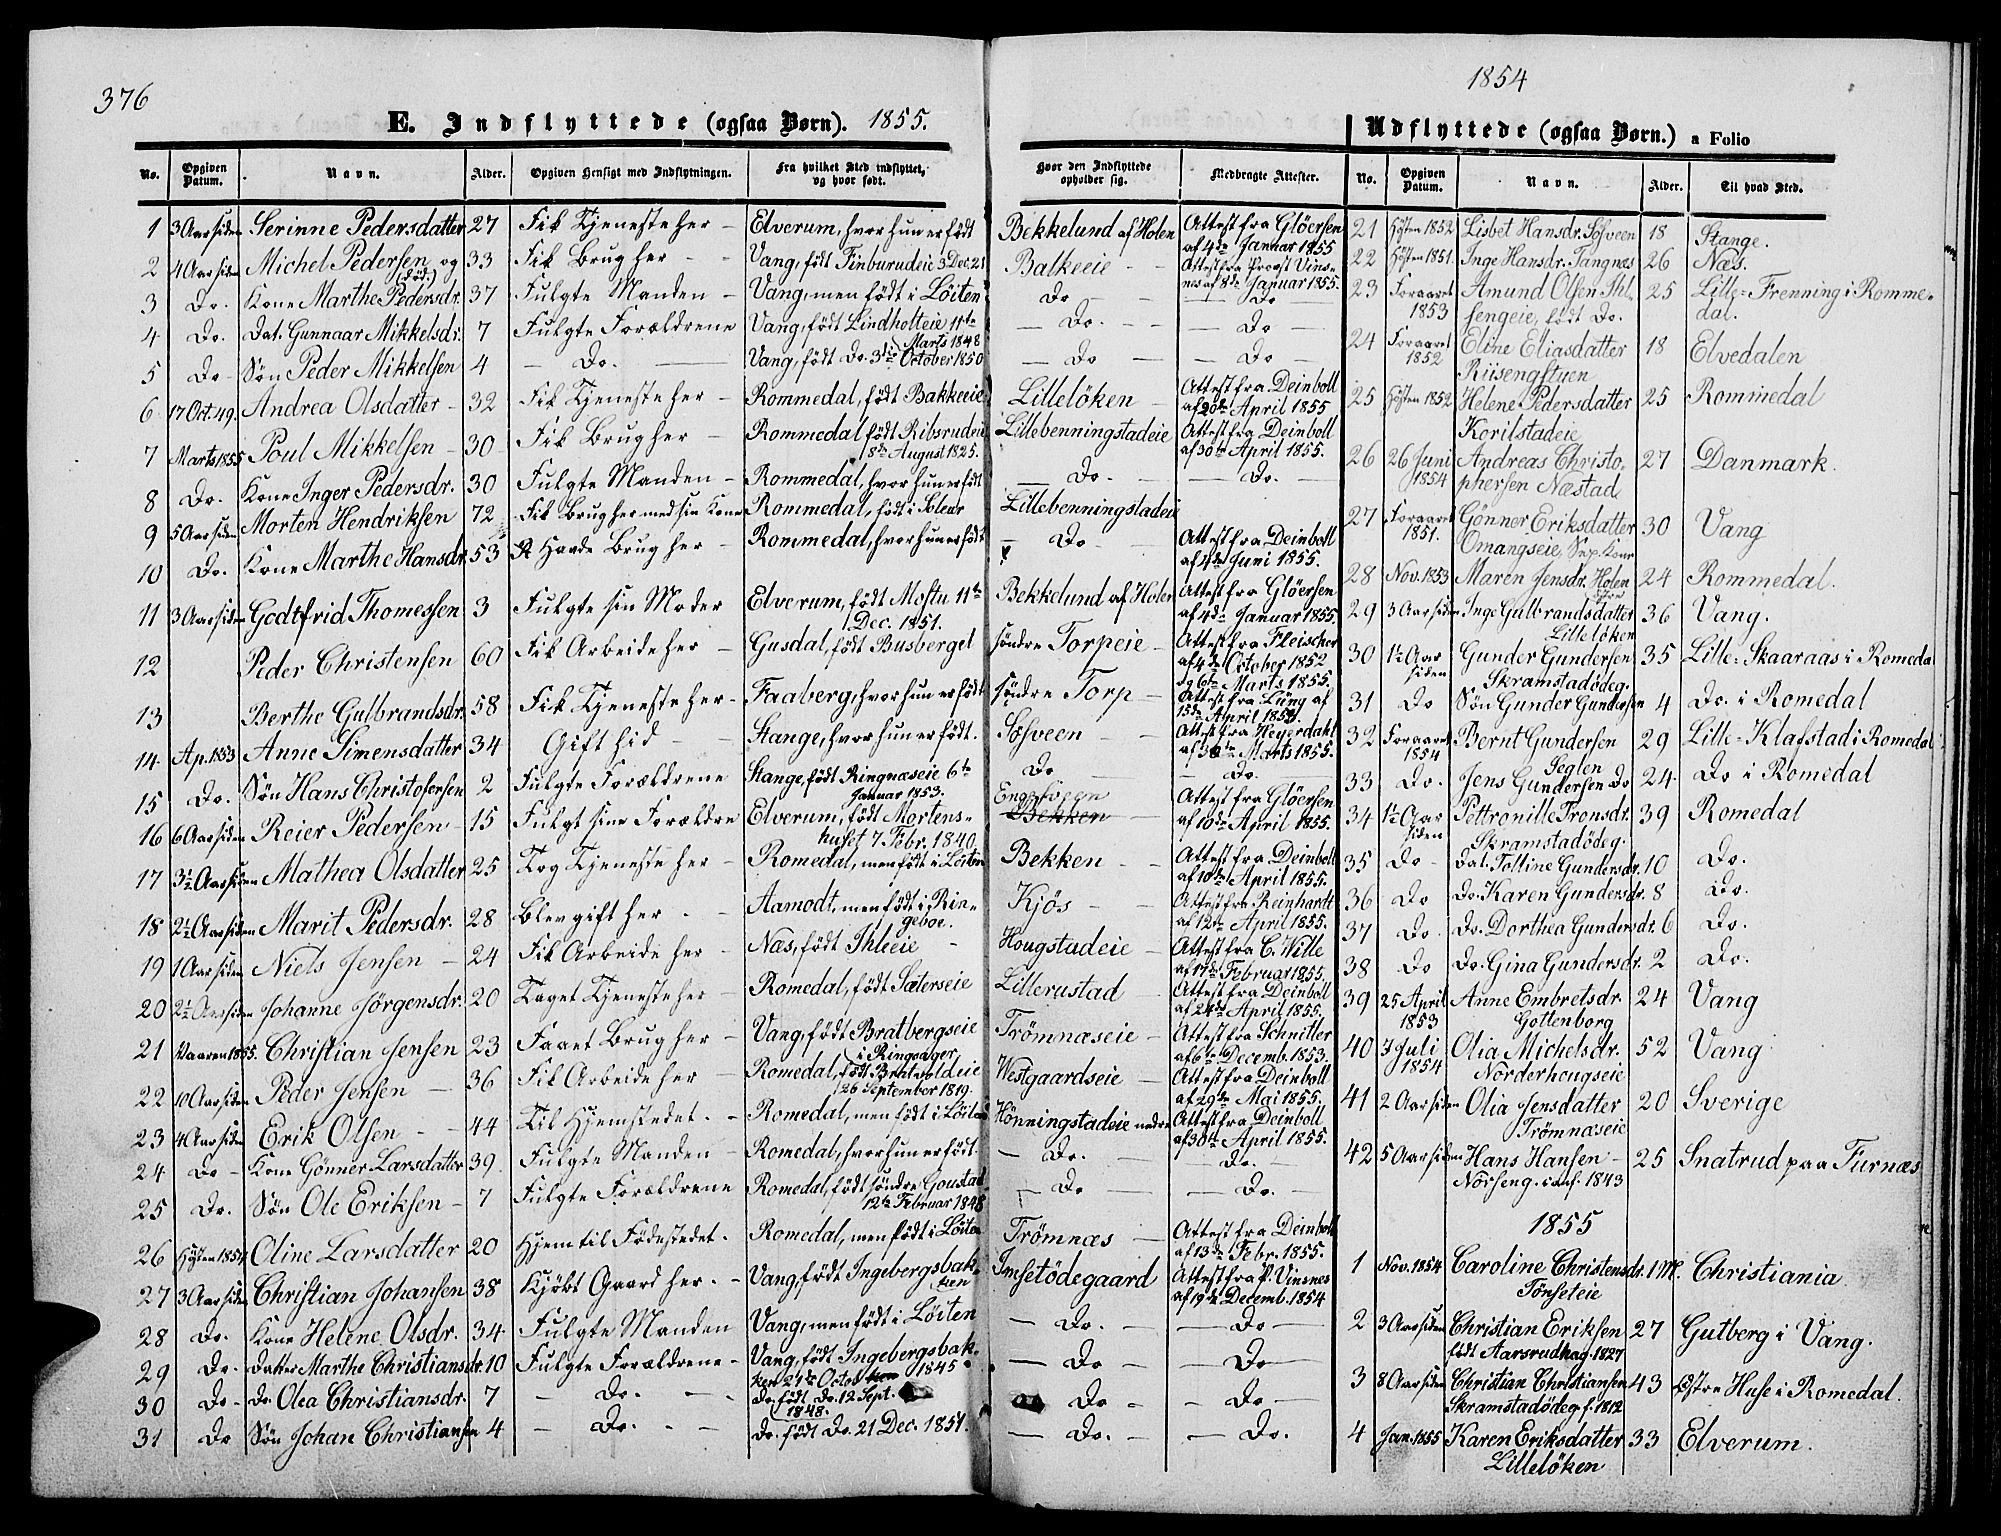 376
E. Indflyttede (ogsaa Børn). 1855.
No. Opgiven Datum. Navn. Alder. Opgiven Hensigt med Indflytningen. Fra hvilket Sted indflyttet, og hvor født. Hvor den Indflyttede opholder sig. Medbragte Attester.
1 3 Aar siden Serinne Pedersdatter 27 Fik Tjeneste her – Elverum, hvor hun er født Bekkelund af Holen Attest fra Glöersen af 4de Januar 1855
2 4 Aar siden Michel Pedersen og 33 Fik Brug her – Vang, født Finburudeie 3 Dec. 21 Balkeeie – Attest fra Provst Vinsnes af 8de Januar 1855.
3 Do. Kone Marthe Pedersdr. (død) 37 Fulgte Manden – Vang, men født i Löiten Do – Do
4 Do. Dat. Gunnaar Mikkelsdr. 7 Fulgte Forældrene Vang, født Lindholteie 11te Marts 1848 – Do. – – Do –
5 Do – Søn Peder Mikkelsen 4 – Do. – Vang, født Do. 3die October 1850 – Do – – Do –
6 17 Oct. 49. Andrea Olsdatter – 32 Fik Tjeneste her – Rommedal, født Bakkeeie Lilleløken – Attest fra Deinboll af 20de April 1855
7 Marts 1855 Poul Mikkelsen – 30 Fik Brug her – Rommedal, født Ribsrudeie 8de August 1825. Lillebenningstadeie Attest fra Deinboll af 30te April 1855.
8 Do. Kone Inger Pedersdr. 30 Fulgte Manden – Rommedal, hvor hun er født – Do. – – Do. –
9 5 Aar siden Morten Hendriksen 72 Fik Brug her med sin Kone Rommedal, født i Soleur Lillebenningstadeie
10 Do. Kone Marthe Hansdr. 53 Havde Brug her – Rommedal, hvor hun er født – Do – Attest fra Deinboll af 4de Juni 1855.
11 3 Aar siden Godtfrid Thomessen 3 Fulgte sin Moder Elverum, født Mostu 11te Dec. 1851. Bekkelund af Holen Attest fra Glöersen af 4de Januar 1855.
12 Peder Christensen 60 Fik Arbeide her – Gusdal, født Busberget søndre Torpeie – Attest fra Fleischer af 4de October 1852 og 6te Marts 1855.
13 Berthe Gulbrandsdr. 58 Fik Tjeneste her – Faaberg, hvor hun er født søndre Torp – Attest fra Lüng af 15de April 1853
14 Ap. 1853 Anne Simensdatter 34 Gift hid – Stange, hvor hun er født. Søsveen – Attest fra Heyerdahl af 30te Marts 1855.
15 Do. Søn Hans Christofersen 2 Fulgte Forældrene Stange, født Ringnæseie 6te Januar 1853. Do – Do. –
16 6 Aar siden Reier Pedersen – 15 Fulgt sine Forældre Elverum, født Mortenshuset 7. Febr. 1840 Engesveen Bekken Attest fra Glöersen af 10de April 1855.
17 3½ Aar siden Mathea Olsdatter 25 Tog Tjeneste her – Romedal, men født i Löiten Bekken – Attest fra Deinboll af 10de April 1855.
18 2½ Aar siden Marit Pedersdr. 28 Blev gift her – Aamodt, men født i Ringeboe. Kjøs – Attest fra Reinhardt af 12te April 1855.
19 1 Aar siden Niels Jensen – 24 Fik Arbeide her – Næs, født Ihleeie – Hougstadeie – Attest fra C. Wille af 17de Februar 1855.
20 2½ Aar siden Johanne Jørgensdr. 20 Taget Tjeneste her – Romedal, født Sæterseie Lillerustad – Attest fra Deinboll af 24de April 1855.
21 Vaaren 1855. Christian Jensen 23 Faaet Brug her – Vang, født Bratbergseie i Ringsager Trömnæseie – Attest fra Schnitler af 6te Decemb. 1853.
22 10 Aar siden Peder Jensen – 36 Fik Arbeide her – Romedal, født Brutvoldeie 26 September 1819. Westgaardseie – Attest fra Deinboll af 29de Mai 1855.
23 4 Aar siden Erik Olsen – 44 Til Hjemstedet. – Romedal, men født i Löiten Hönningstadeie nedre Attest fra Deinboll af 30te April 1855.
24 Do – Kone Gønner Larsdatter 39. Fulgte Manden – Romedal, hvor hun er født. – Do. – – Do. –
25 Do. Søn Ole Eriksen – 7 Fulgte Forældrene Romedal, født søndre Goustad 12te Februar 1848 – Do – – Do. –
26 Høsten 1854 Oline Larsdatter 20 Hjem til Fødestedet. Romedal, men født i Löiten Trömnæs – Attest fra Deinboll af 13de Febr. 1855.
27 3 Aar siden Christian Johansen 38 Kjøbt Gaard her. – Vang, født Ingebergsbakken Imsetödegaard Attest fra P. Vinsnes af 19de Decemb. 1854
28 Do. Kone Helene Olsdr. 34 Fulgte Manden Vang, men født i Löiten – Do. – – Do –
29 Do. Datter Marthe Christiansdr. 10 Fulgte Forældrene – Vang, født Ingebergsbakken 27de Octob 1845 – Do – – Do –
30 Do – Do Olea Christiansdr. 7 – Do. – Do. født Do. 12 Sept. 1848. Do – Do –
31 Do Søn Johan Christiansen 4 – Do. – Do. født Do. 21 Dec. 1851. – Do. – – Do.
1854
Udflyttede (ogsaa Børn.) a Folio
No. Opgiven Datum. Navn. Alder. Til hvad Sted.
21 Høsten 1852 Lisbet Hansdr. Søsveen 18 Stange.
22 Høsten 1851. Inge Hansdr. Tangnæs 26 Næs.
23 Foraaret 1853 Amund Olsen Ihlsengeie, født Do. 25 Lille-Frenning i Rommedal.
24 Foraaret 1852 Eline Eliasdatter Riisengstuen 18 Elvedalen
25 Høsten 1852 Helene Pedersdatter Korilstadeie 25 Rommedal
26 26 Juni 1854 Andreas Christophersen Næstad 27 Danmark.
27 Foraaret 1851. Gønner Eriksdatter Omangseie Sep. Kone 30 Vang
28 Nov. 1853 Maren Jensdr. Holen 24 Rommedal.
29 3 Aar siden Inge Gulbrandsdatter Lilleløken 36 Vang.
30 1½ Aar siden Gunder Gundersen Skramstadødeg. 35 Lille-Skaaraas i Romedal
31 Do Søn Gunder Gundersen 4 Do. i Romedal
32 Foraaret 1854 Bernt Gundersen Seglen 29 Lille-Klafstad i Romedal
33 Do. Jens Gundersen Do 24 Do i Romedal
34 1½ Aar siden Pettronille Tronsdr. Skramstadødeg. 39 Romedal
35 Do – Dat. Tolline Gundersdr. 10 Do.
36 Do Do. Karen Gundersdr. 8 Do.
37 Do Do. Dorthea Gundersdr. 6 Do.
38 Do Do. Gina Gundersdr. 2 Do.
39 25 April 1853 Anne Embretsdr. Gottenborg 24 Vang
40 7 Juli 1854 Olia Michelsdr. Norderhougseie 52 Vang
41 2 Aar siden Olia Jensdatter Trömnæseie 20 Sverige
42 5 Aar siden Hans Hansen – Nörseng. conf. 1843 25 Snatrud paa Furnæs
1855
1 Nov. 1854 Caroline Christensdr. Tönseteie 1 M. Christiania
2 3 Aar siden Christian Eriksen født Aarsrudhag. 1827 27 Gutberg i Vang.
3 8 Aar siden Christian Christiansen Skramstadødeg. f. 1812 43 østre Huse i Romedal.
4 Jan. 1855 Karen Eriksdatter Lilleløken 33 Elverum.